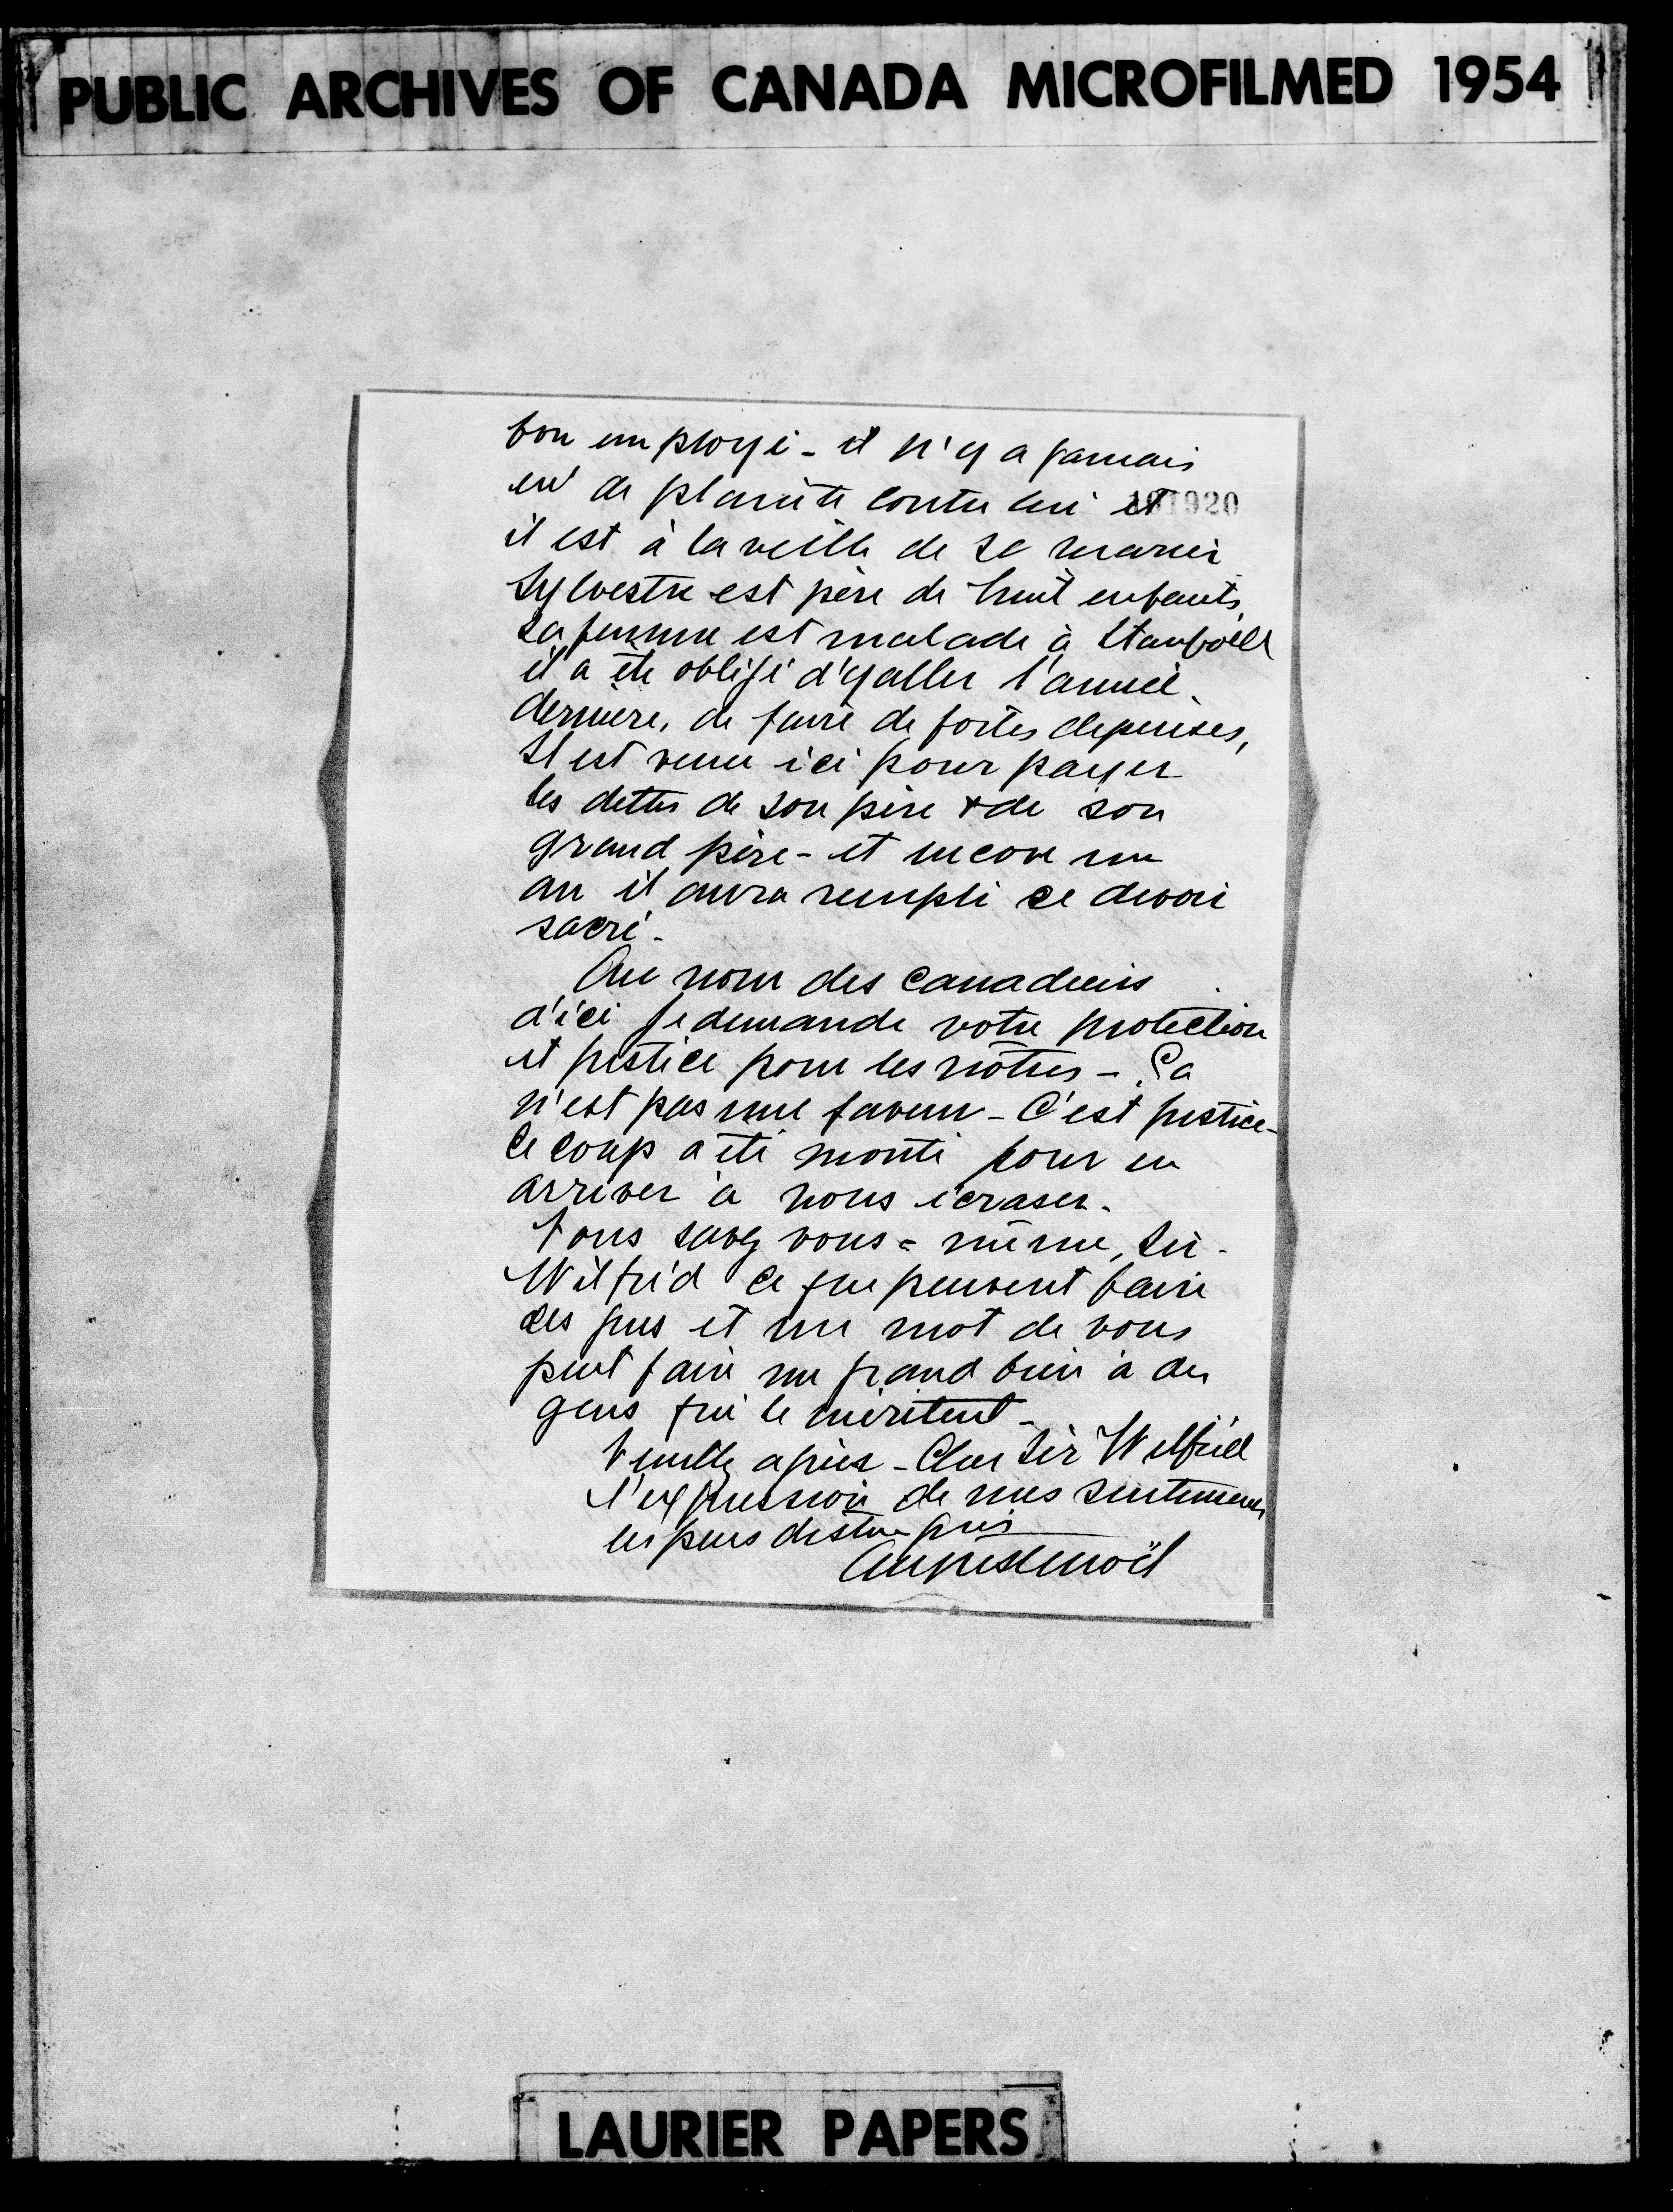 PUBLIC ARCHIVES OF CANADA MICROFILMED 1954
bon employé - il n'y a jamais
eu de plainte contre lui et
il est à la veille de se marier
Sylvestre est père de huit enfants,
sa femme est malade à Stanfold
il a été obligé d'y aller l'année
dernière, de faire de fortes depenses,
Il est venu ici pour payer
les dettes de son père & de son
grand père - et encore un
an il aura rempli ce devoir
sacré -
Au nom des Canadiens
d'ici je demande votre protection
et justice pour les nôtres - Ça
n'est pas une faveur - C'est justice -
Le coup a été monté pour en
arriver à nous écraser.
Vous savez vous=même, Sir
Wilfrid ce que peuvent faire
des gens et un mot de vous
peut faire un grand bien à des
gens qui le méritent -
Veuillez agréer - Cher Sir Wilfrid
l'expression de mes sentiments
les plus distingués
Auguste Noël
LAURIER PAPERS